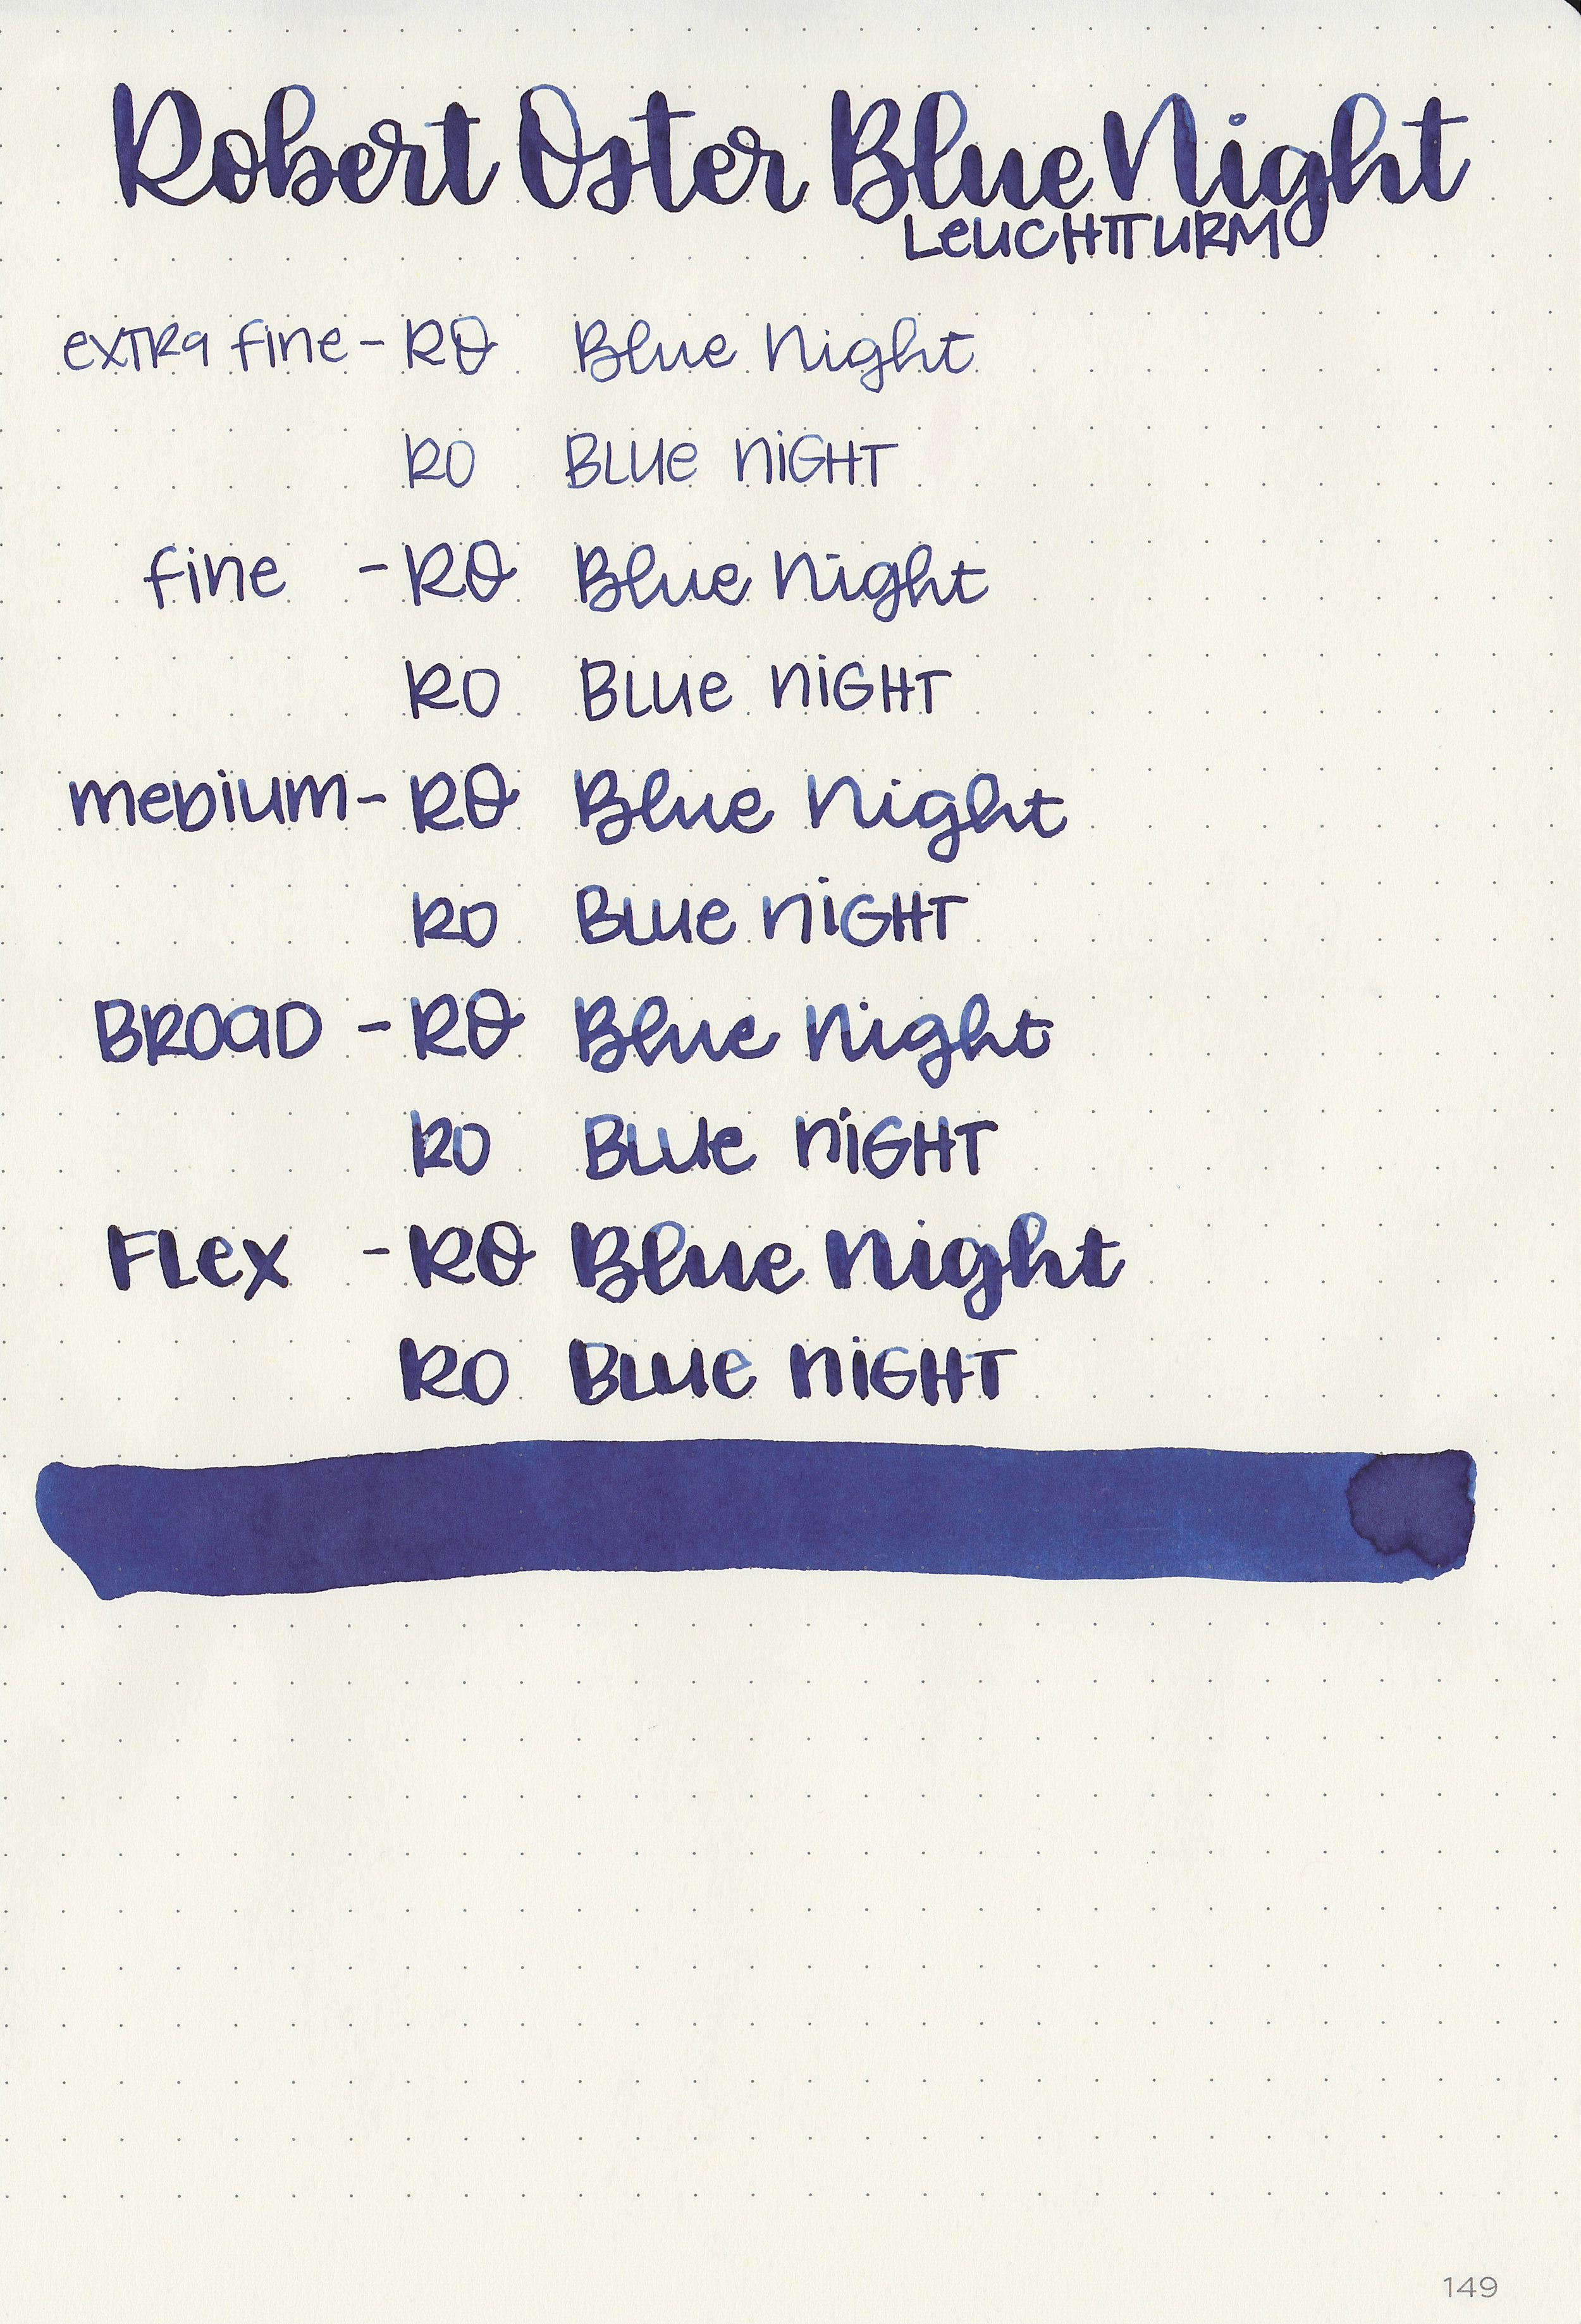 Robert Oster Blue Night
LEUCHTTURM
extra fine - RO Blue Night
RO BLUE NIGHT
fine - RO Blue Night
RO BLUE NIGHT
medium - RO Blue Night
RO BLUE NIGHT
BROAD - RO Blue Night
RO BLUE NIGHT
FLex - RO Blue Night
RO BLUE NIGHT
149